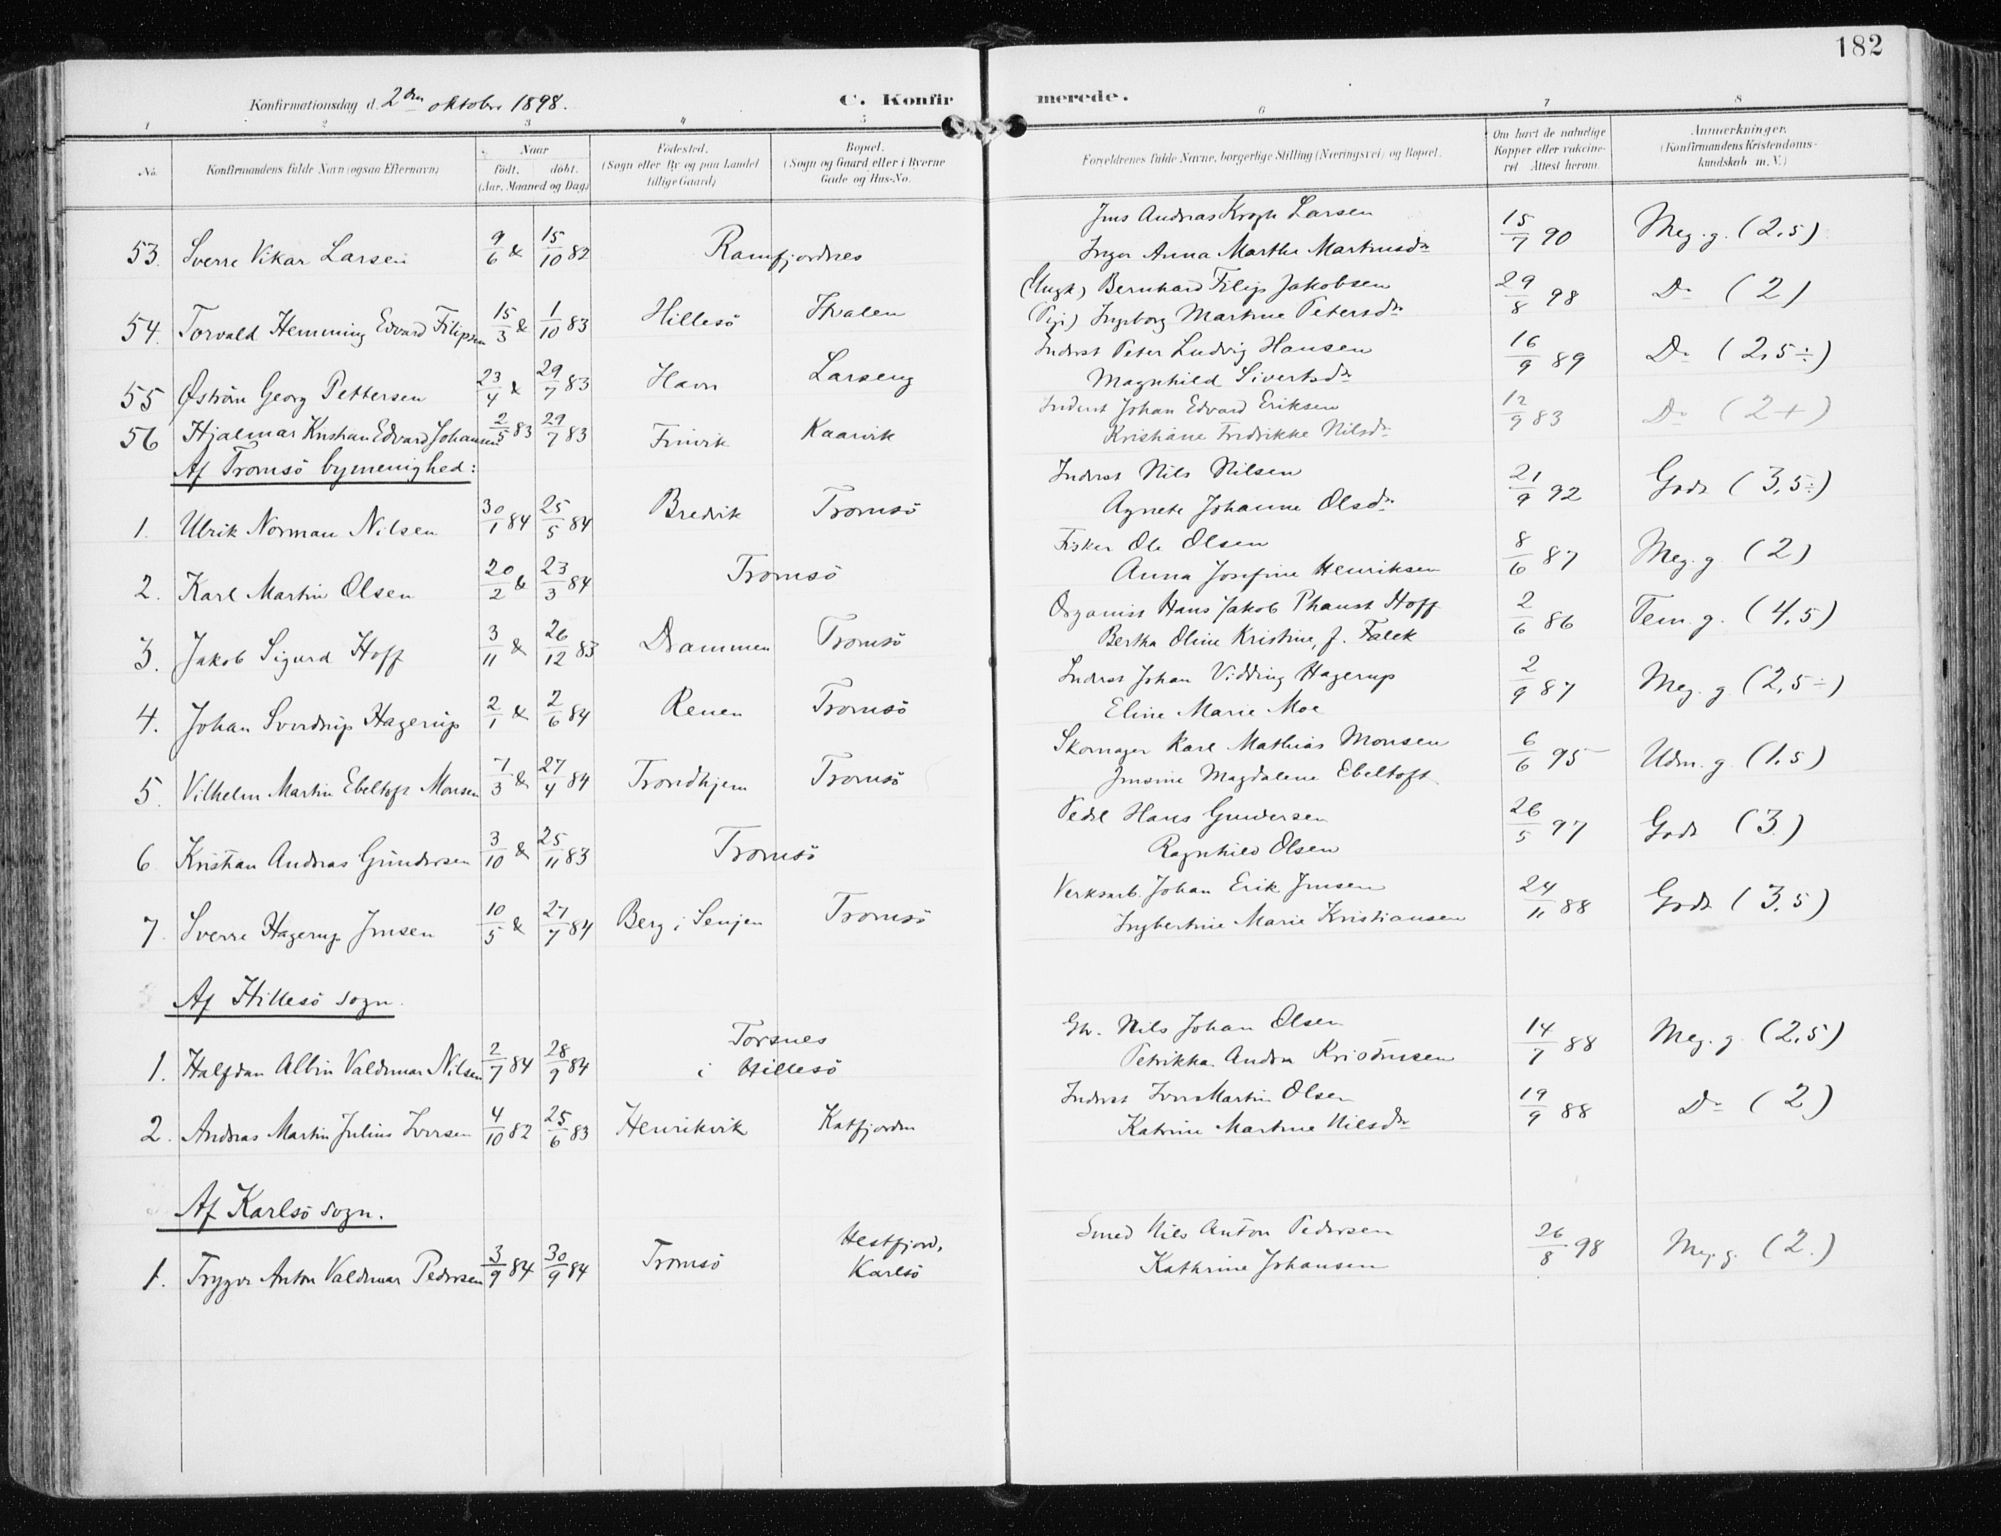 182
Konfirmationsdag d. 2den oktober 1898.
C. Konfirmerede.
1 2 3 4 5 6 7 8
No.
Konfirmandens fulde Navn (ogsaa Efternavn)
Naar
født. døbt.
(Aar, Maaned og Dag)
Fødested.
(Sogn eller By og paa Landet
tillige Gaard)
Bopæl.
(Sogn og Gaard eller i Byerne
Gade og Hus-No.
Forældrenes fulde Navne, borgerlige Stilling (Næringsvei) og Bopæl.
Om havt de naturlige
Kopper eller vaccine-
ret Attest herom.
Anmærkninger.
(Konfirmandens Kristendoms-
kundskab m. V.)
53. Sverre Vikar Larsen 9/6 & 15/10 82 Ramfjordnes Jens Andreas Krogh Larsen 15/7 90 Meg. g. (2,5)
Inger Anna Marthe Martinusdr
54. Torvald Hemming Edvard Filipsen 15/3 & 1/10 83 Hillesö Kvalen (Ungk) Bernhard Filip Jakobsen 29/8 98 Do (2)
(Pige) Ingeborg Martine Petersdr
55 Øström Georg Pettersen 23/4 & 29/7 83 Havn Larseng Inderst Peter Ludvig Hansen 16/9 89 Do (2,5 ÷)
Magnhild Sivertsdr
56 Hjalmar Kristian Edvard Johansen 2/5 83 29/7 83 Finvik Kaarvik Inderst Johan Edvard Eriksen 12/9 83 Do (2+)
Kristiane Fredrikke Nilsdr
Af Tromsö bymenighed:
1. Ulrik Norman Nilsen 30/1 84 25/5 84 Bredvik Tromsö Inderst Nils Nilsen 21/9 92 Godt (3,5 ÷)
Agnete Johanne Olsdr
2. Karl Martin Olsen 20/2 & 23/3 84 Tromsö Fisker Ole Olsen 8/6 87 Meg. g. (2)
Anna Josefine Henriksen
3. Jakob Sigurd Hoff 3/11 & 26/12 83 Drammen Tromsö Organist Hans Jakob Phaust Hoff 2/6 86 Tem. g. (4,5)
Bertha Oline Kristine, f. Falck
4. Johan Sverdrup Hagerup 2/1 & 2/6 84 Renen Tromsö Inderst Johan Vidding Hagerup 2/9 87 Meg. g. (2,5 ÷)
Eline Marie Moe
5. Vilhelm Martin Ebeltoft Monsen 7/3 & 27/4 84 Trondhjem Tromsö Skomager Karl Mathias Monsen 6/6 95 Udm. g. (1,5)
Jensine Magdalene Ebeltoft
6. Kristian Andreas Gundersen 3/10 & 25/11 83 Tromsö Pedel Hans Gundersen 26/5 97 Godt (3)
Ragnhild Olsen
7. Sverre Hagerup Jensen 10/5 & 27/7 84 Berg i Senjen Tromsö Verksarb. Johan Erik Jensen 24/11 88 Godt (3,5)
Ingbertine Marie Kristiansen
Af Hillesö sogn.
1. Halfdan Albin Valdemar Nilsen 2/7 84 28/9 84 Torsnes Gbr. Nils Johan Olsen 14/7 88 Meg. g. (2,5)
i Hillesö Petrikka Andrea Kristensen
2. Andreas Martin Julius Iversen 4/10 82 25/6 83 Henrikvik Katfjorden Inderst Iver Martin Olsen 19/9 88 Do (2)
Katrine Martine Nilsdr
Af Karlsö sogn.
1. Trygve Anton Valdemar Pedersen 3/9 84 30/9 84 Tromsö Hestfjord, Smed Nils Anton Pedersen 26/8 98 Meg. g. (2.)
Karlsö Kathrine Johansen